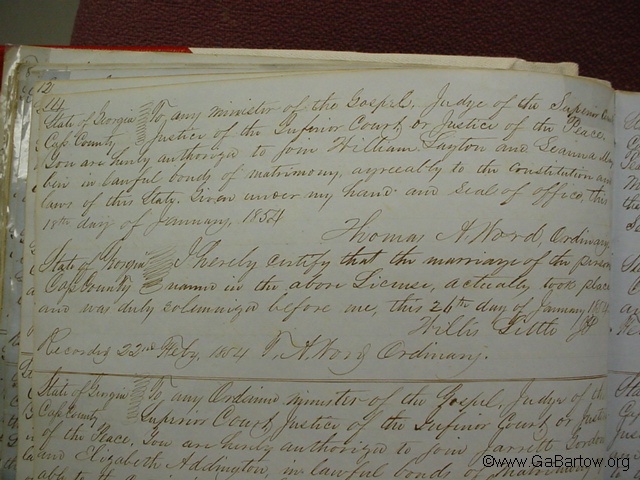 12
State of Georgia To any minister of the Gospel, Judge of the Superior
Cass County Justice of the Inferior Court or Justice of the Peace,
You are herby authorized to join William Layton and
in lawful bonds of matrimony, agreeably to the constitution and
laws of this State. Given under my hand and seal of office, this
18th day of January, 1854
Thomas A. Word, Ordinary
State of Georgia I hereby certify that the marriage of the person
Cass County named in the above License, actually took place
and was duly solemnized before me, this 26th day of January 1854
Willis Little JP
Recorded 22nd Feby, 1854 T. A. Word Ordinary.
State of Georgia To any Ordained minister of the Gospel, Judge of the
Cass County Superior Court, Justice of the Inferior Court or Justice
of the Peace. You are herby authorized to join Jarrett Gordon
and Elizabeth Addington, in lawful bonds of matrimony
able to the
©www.GaBartow.org